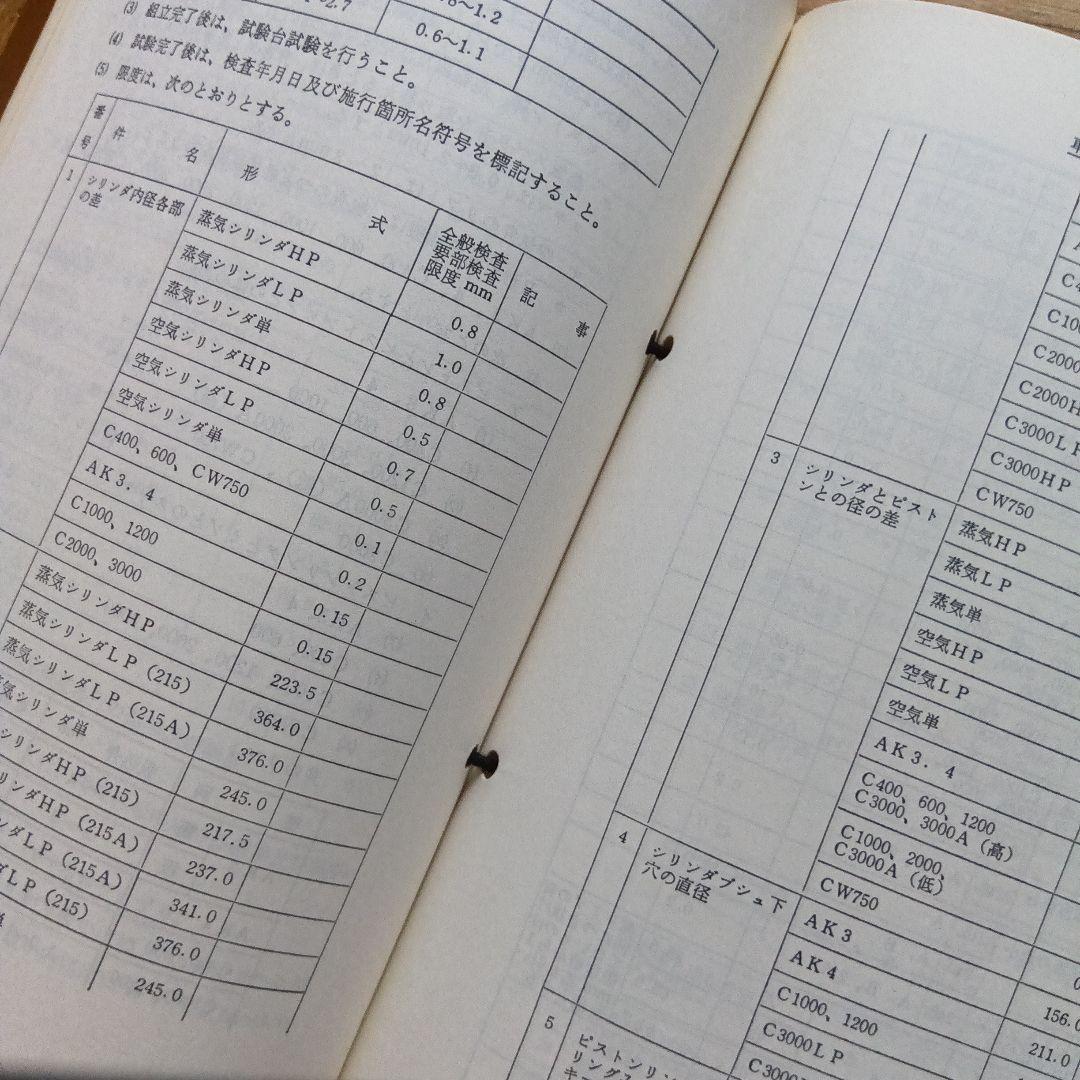 2.7
1.2
0.6〜1.1
(3) 組立完了後は、試験台試験を行うこと。
(4) 試験完了後は、検査年月日及び施行箇所名符号を標記すること。
(5) 限度は、次のとおりとする。
番号 件名 形式 全般検査 要部検査 限度 mm 記事
1 シリンダ内径各部の差 蒸気シリンダHP 0.8
蒸気シリンダLP 1.0
蒸気シリンダ単 0.8
空気シリンダHP 0.5
空気シリンダLP 0.7
空気シリンダ単 0.5
C400、600、CW750 0.1
AK3.4 0.2
C1000、1200 0.15
C2000、3000 0.15
蒸気シリンダHP 223.5
蒸気シリンダLP(215) 364.0
蒸気シリンダLP(215A) 376.0
蒸気シリンダ単 245.0
シリンダHP(215) 217.5
リンダHP(215A) 237.0
ンダLP(215A) 341.0
ダLP(215) 376.0
単 245.0
C10
C2000
C2000H
C3000LP
C3000HP
CW750
3 シリンダとピストンとの径の差 蒸気HP
蒸気LP
蒸気単
空気HP
空気LP
空気単
AK3.4
C400、600、1200
C3000、3000A(高)
C1000、2000、
C3000A(低)
CW750
4 シリンダブシュ下穴の直径 AK3
AK4 156.0
C1000、1200 211.0
C3000LP
C3000
5 ピストンリン
リングス
キー